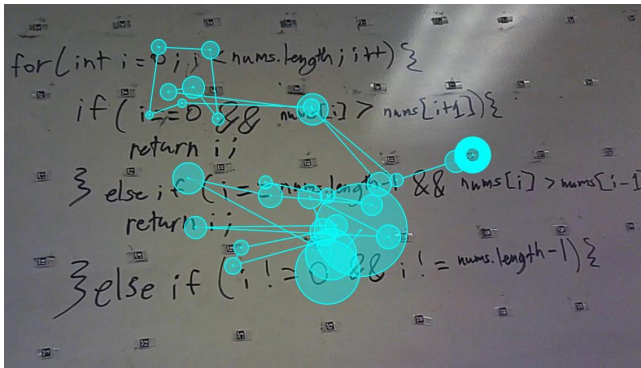 for(int i=0; i < nums.length; i++){
if( i==0 && nums[i] > nums[i+1]){
return i;
} else if ( i == nums.length-1 && nums[i] > nums[i-1]
return i;
}else if ( i != 0 && i != nums.length-1){